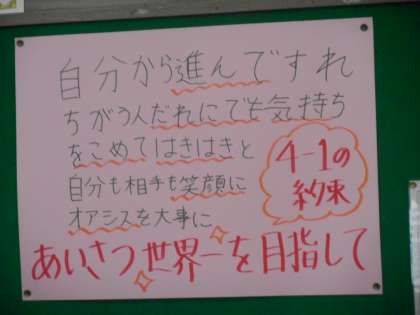 自分から進んですれ
ちがう人だれにでも気持ち
をこめてはきはきと
自分も相手も笑顔に
オアシスを大事に
4-1の
約束
あいさつ世界一を目指して